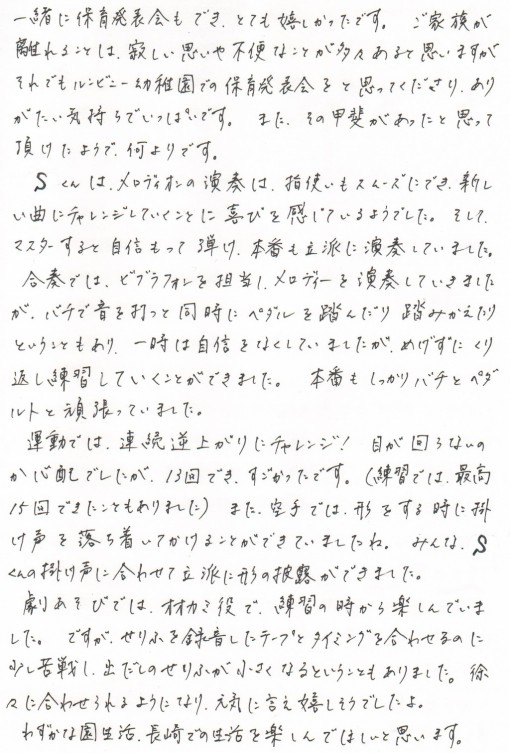 一緒に保育発表会もでき、とても嬉しかったです。 ご家族が
離れることは、寂しい思いや不便なことが多々あると思いますが
それでもルンビニー幼稚園での保育発表会をと思ってくださり、あり
がたい気持ちでいっぱいです。 また、その甲斐があったと思って
頂けたようで、何よりです。
Sくんは、メロディオンの演奏は、指使いもスムーズにでき、新し
い曲にチャレンジしていくことに喜びを感じているようでした。そして、
マスターすると自信もって弾け、本番も立派に演奏していました。
合奏では、ビブラフォンを担当し、メロディーを演奏していきました
が、バチで音を打つと同時にペダルを踏んだり踏みかえたり
ということもあり、一時は自信をなくしていましたが、めげずにくり
返し練習していくことができました。 本番もしっかりバチとペダ
ルトと頑張っていました。
運動では、連続逆上がりにチャレンジ! 目が回らないの
か心配でしたが、13回でき、すごかったです。(練習では、最高
15回できたこともありました) また、空手では、形をする時に掛
け声を落ち着いてかけることができていましたね。 みんな、S
くんの掛け声に合わせて立派に形の披露ができました。
劇あそびでは、オオカミ役で、練習の時から楽しんでいま
した。 ですが、せりふを録音したテープとタイミングを合わせるのに
少し苦戦し、出だしのせりふが小さくなるということもありました。徐
々に合わせられるようになり、元気に言え嬉しそうでしたよ。
わずかな園生活、長崎での生活を楽しんでほしいと思います。